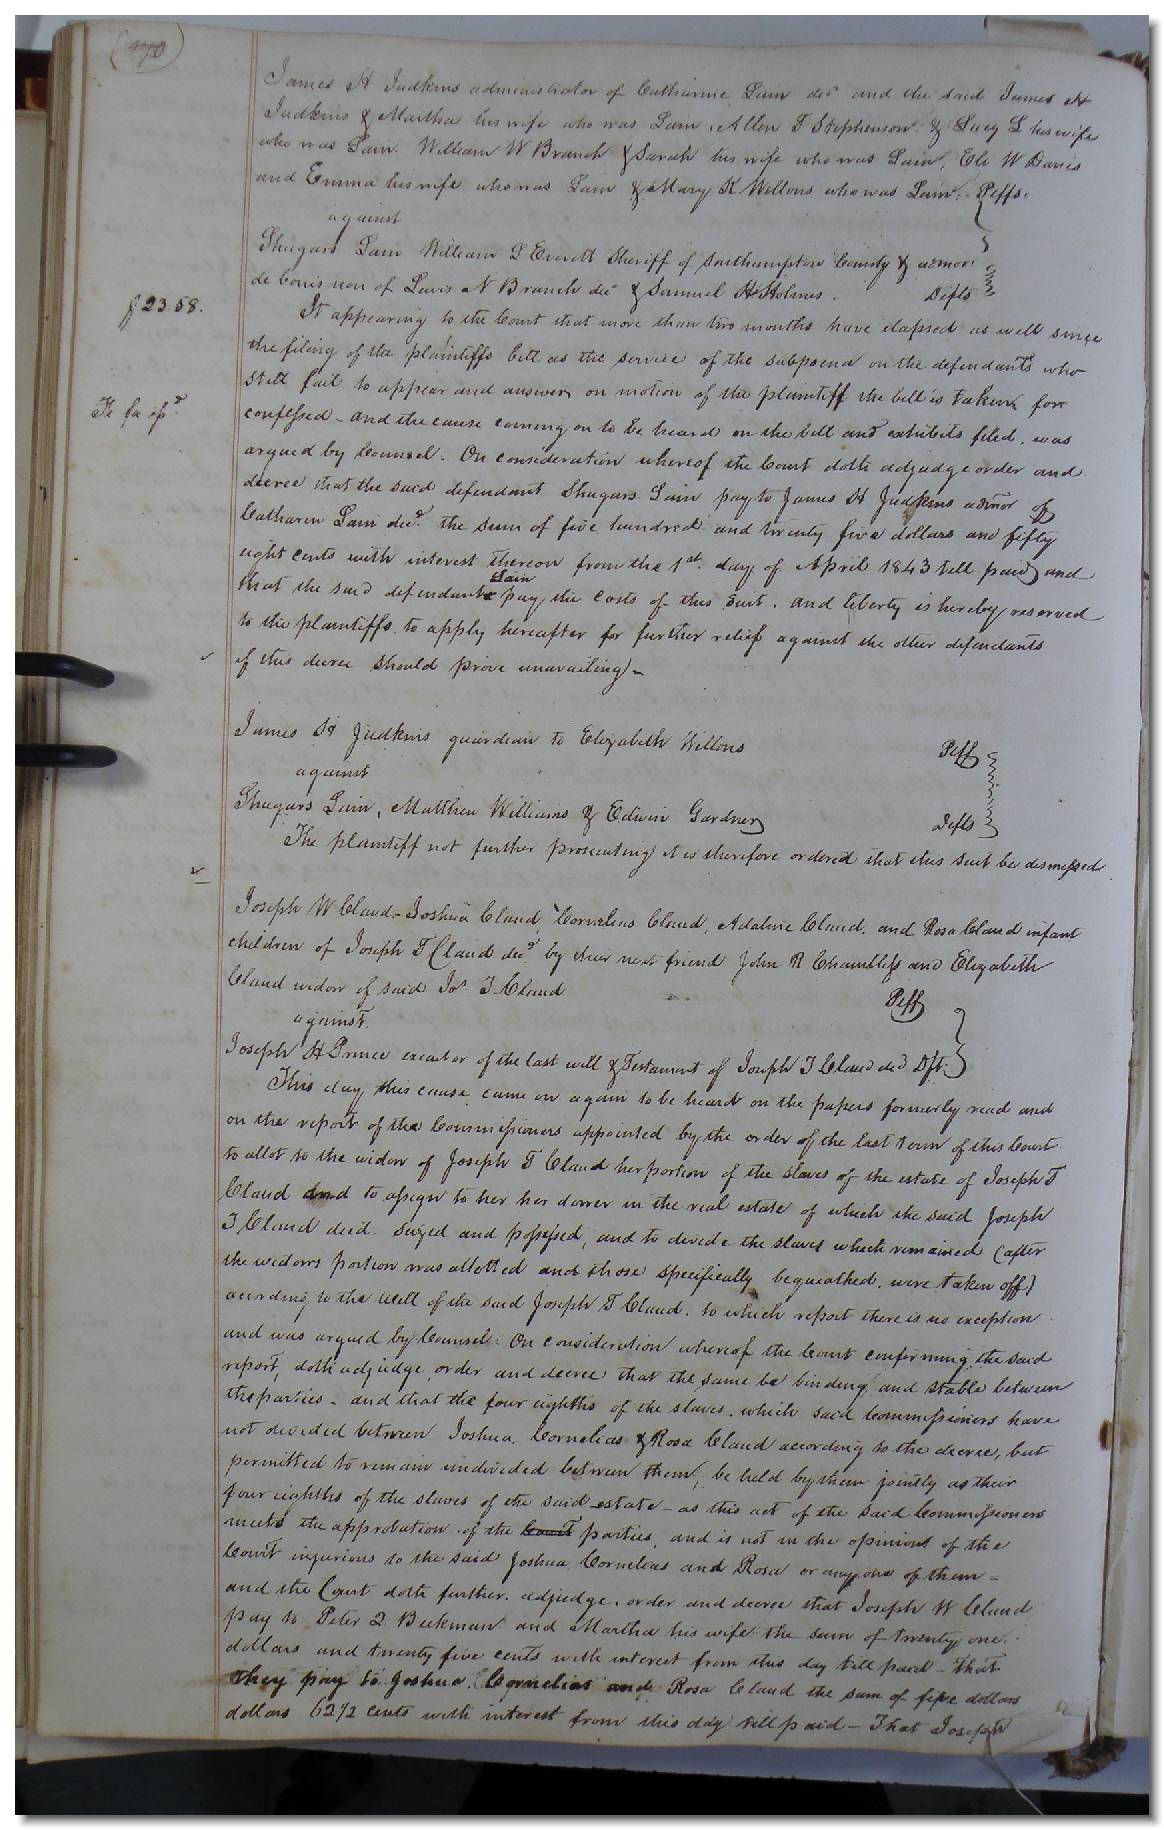 (470)
James H Judkins administrator of Catharine Lain decd and the said James H
Judkins & Martha his wife who was Lain, Allen T Stephenson & Lucy L his wife
who was Lain. William W Branch & Sarah his wife who was Lain, Eli W Davis
and Emma his wife who was Lain & Mary K Wellons who was Lain. Plffs.
against
Shugars Lain William L Everett Sheriff of Southampton County & admor
de bonis non of Lewis N Branch decd & Samuel H Holmes. Defts
$23.58.
It appearing to the Court that more than two months have elapsed as well since
the filing of the plaintiffs bill as the service of the subpoena on the defendants who
still fail to appear and answer, on motion of the plaintiff the bill is taken for
Fi fa issd.
confessed - and the cause coming on to be heard on the bill and exhibits filed, was
argued by Counsel. On consideration whereof the Court doth adjudge order and
decree that the said defendant Shugars Lain pay to James H Judkins admor of
Catharin Lain decd. the sum of five hundred and twenty five dollars and fifty
eight cents with interest thereon from the 1st. day of April 1843 till paid and
that the said defendant Lain pay the costs of this suit. and liberty is hereby reserved
to the plaintiffs to apply hereafter for further relief against the other defendants
if this decree should prove unavailing -
James H Judkins guardian to Elizabeth Wellons Plff
against
Shugars Lain, Matthew Williams & Edwin Gardner Defts
The plaintiff not further prosecuting it is therefore ordered that this suit be dismissed
Joseph W Claud - Joshua Claud, Cornelius Claud, Adaline Claud, and Rosa Claud infant
children of Joseph T Claud decd by their next friend John R Chambliss and Elizabeth
Claud widow of said Jos. T Claud Plff
against.
Joseph H Prince executor of the last will & Testament of Joseph T Claud decd Dft.
This day this cause came on again to be heard on the papers formerly read and
on the report of the Commissioners appointed by the order of the last term of this Court
to allot to the widow of Joseph T Claud her portion of the slaves of the estate of Joseph T
Claud and to assign to her her dower in the real estate of which the said Joseph
T Claud died seized and possessed, and to divide the slaves which remained (after
the widows portion was allotted and those specifically bequeathed were taken off)
acording to the will of the said Joseph T Claud. to which report there is no exception
and was argued by Counsel: On consideration whereof the Court confirming the said
report, doth adjudge order and decree that the same be binding and stable between
the parties - and that the four eighths of the slaves which said Commissioners have
not divided between Joshua, Cornelias & Rosa Claud according to the decree, but
permitted to remain undivided between them, be held by them jointly as their
four eighths of the slaves of the said estate - as this act of the said Commissioners
meets the approbation of the Court parties, and is not in the opinion of the
Court injurious to the said Joshua Cornelias and Rosa or any one of them =
and the Court doth further adjudge. order and decree that Joseph W Claud
pay to Peter Z Beekman and Martha his wife the sum of twenty one
dollars and twenty five cents with interest from this day till paid - that
they pay to Joshua Cornelius and Rosa Claud the sum of five dollars
dollars 62½ cents with interest from this day till paid - That Joseph